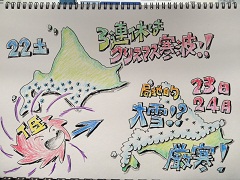 22土
3連休は
クリスマス寒波!!
T低
局地的
大雪!?
23日
24月
厳寒!